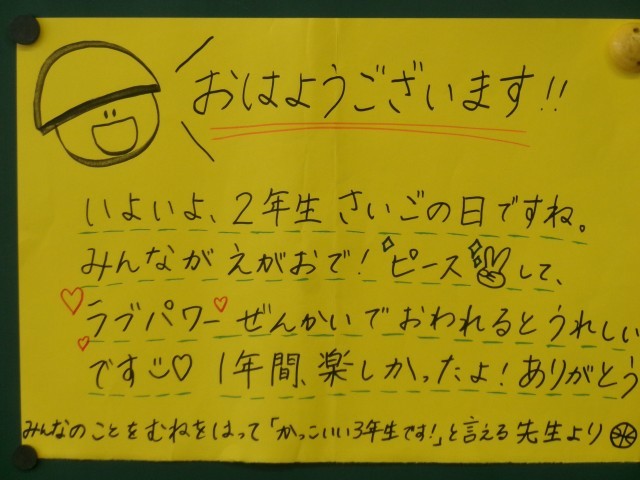 おはようございます!!
いよいよ、2年生さいごの日ですね。
みんながえがおで!ピースして、
ラブパワーぜんかいでおわれるとうれしい
です♡1年間、楽しかったよ!ありがとう
みんなのことをむねをはって「かっこいい3年生です!」と言える先生より